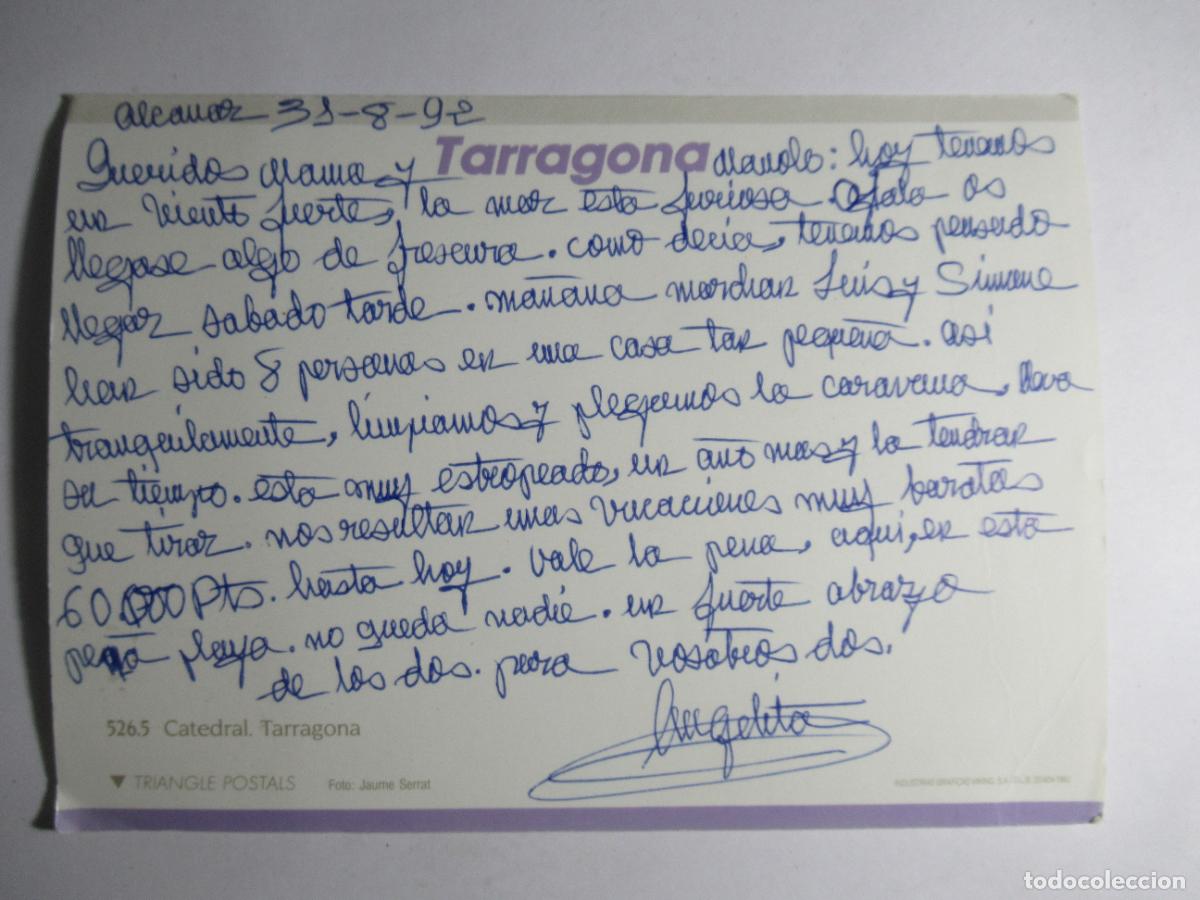 alcanar 31-8-92
Tarragona
Queridos Mama y Manolo: hoy tenemos
un viento fuerte, la mar esta furiosa. Ojala os
llegase algo de frescura. como decia, tenemos pensado
llegar sabado tarde. mañana marchan Luis y Simone
han sido 8 personas en una casa tan pequeña. asi
tranquilamente, limpiamos y plegamos la caravana, lleva
su tiempo. esta muy estropeado, un año mas y la tendran
que tirar. nos resultan unas vacaciones muy baratas
60.000 Pts. hasta hoy. vale la pena, aqui, en esta
playa. no queda nadie. un fuerte abrazo
de los dos. para vosotros dos.
Angelita
526.5 Catedral. Tarragona
TRIANGLE POSTALS Foto: Jaume Serrat
todocoleccion